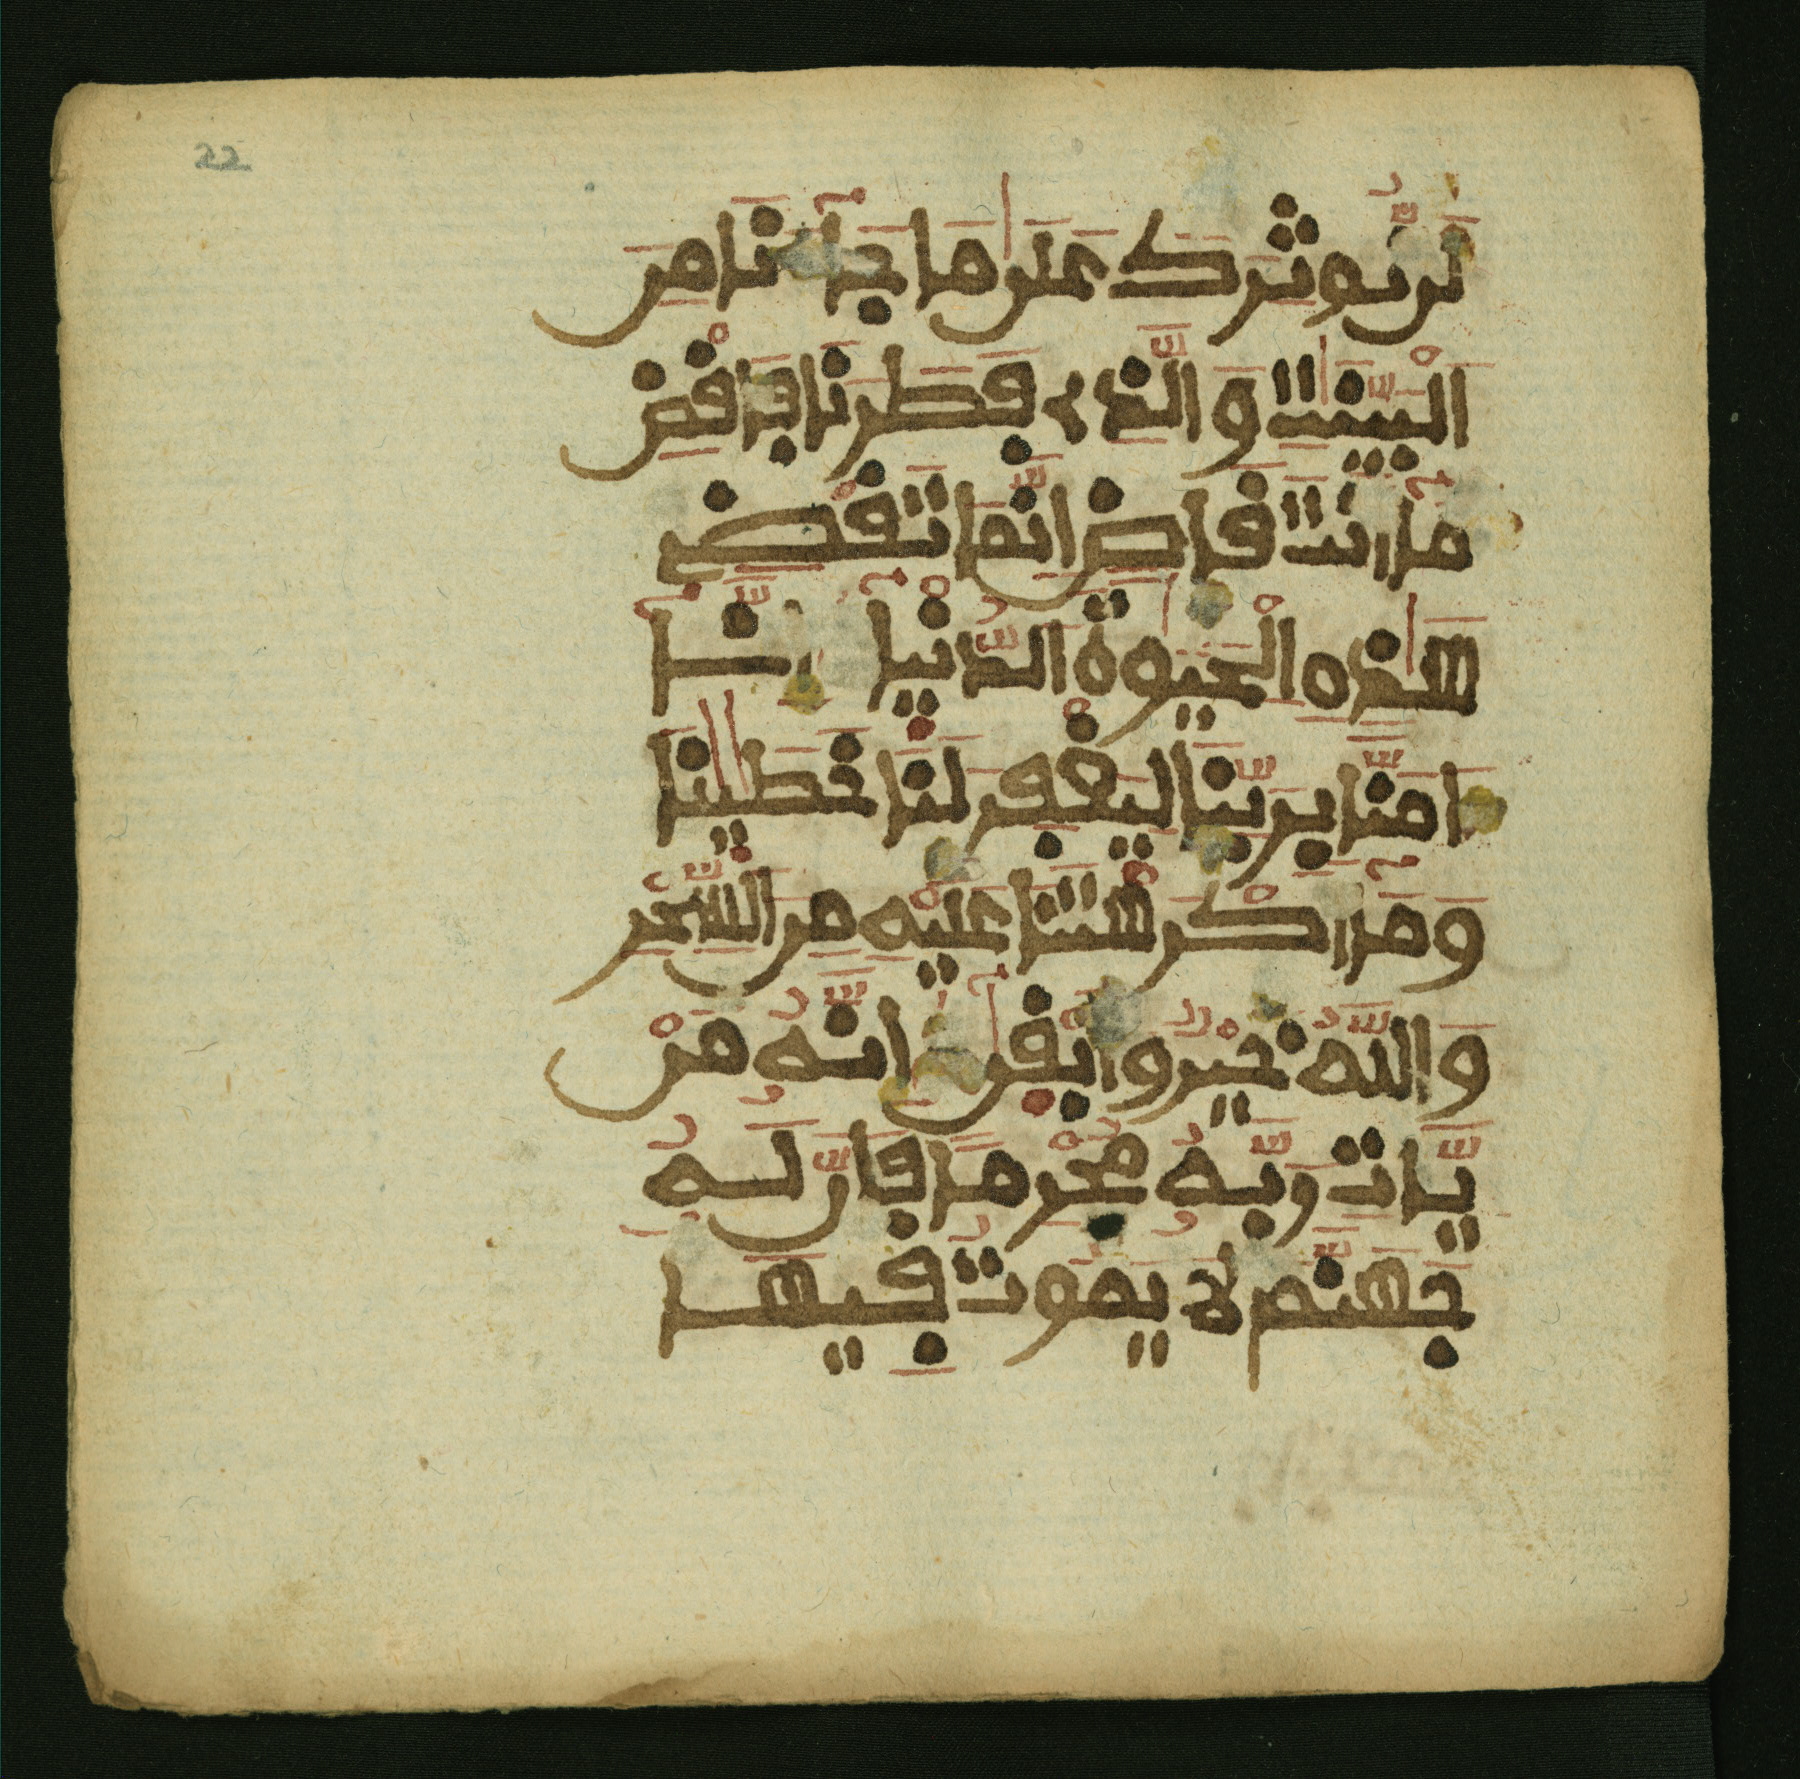 22
لن نوثرك على ما جاءنا من
البينت والذي فطرنا فاقض
ما انت قاض انما تقضي
هذه الحيوة الدنيا انا
امنا بربنا ليغفر لنا خطينا
وما اكرهتنا عليه من السحر
والله خير وابقى انه من
يات ربه مجرما فان له
جهنم لا يموت فيها